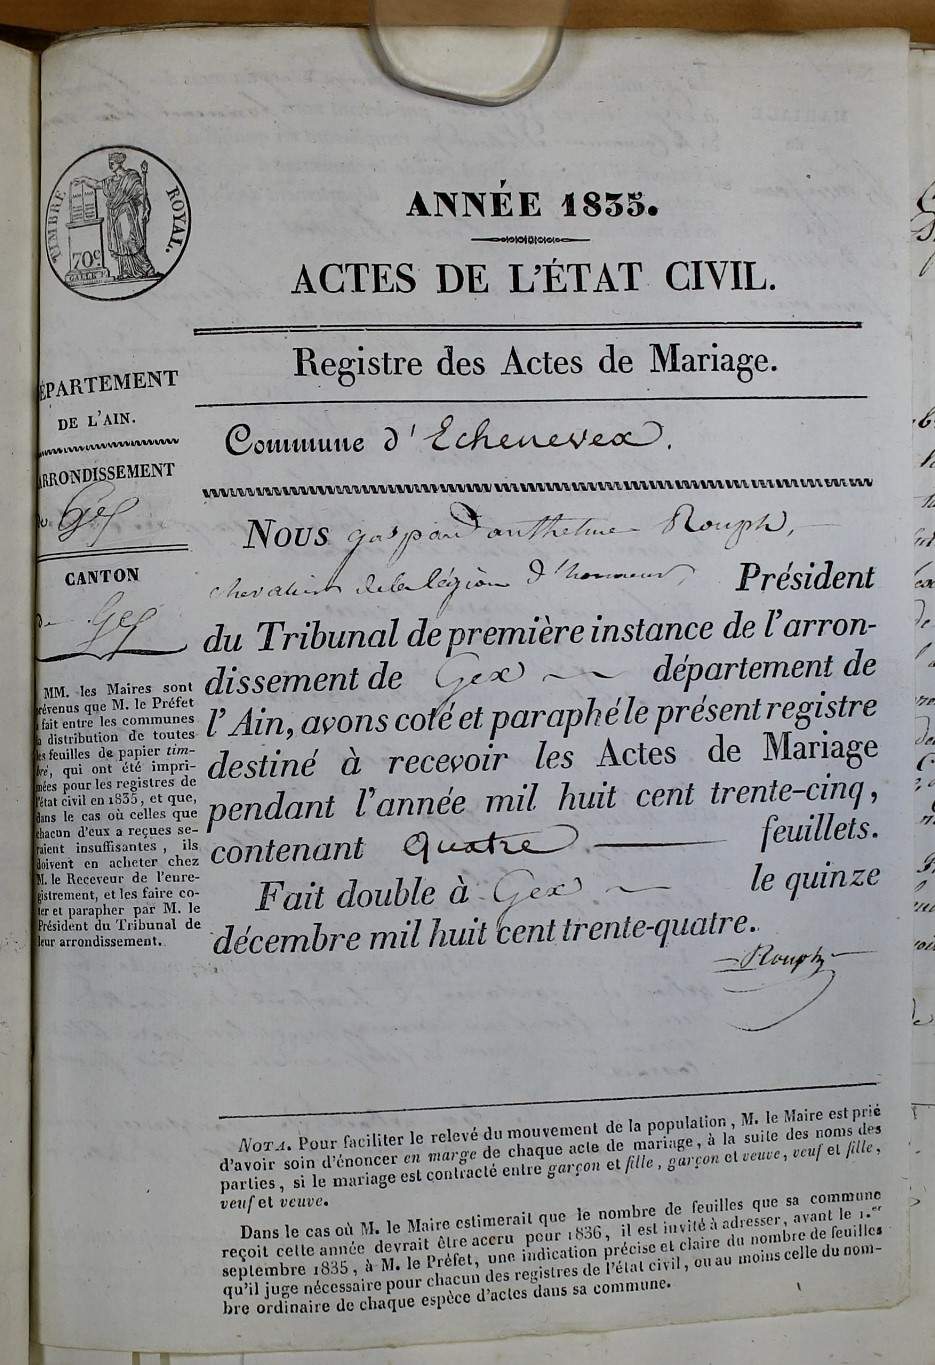 TIMBRE ROYAL.
70c
GALLE F.
ANNÉE 1835.
ACTES DE L'ÉTAT CIVIL.
Registre des Actes de Mariage.
Commune d'Echenevex.
ÉPARTEMENT
DE L'AIN.
ARRONDISSEMENT
de Gex
CANTON
de Gex
MM. les Maires sont
prévenus que M. le Préfet
a fait entre les communes
la distribution de toutes
les feuilles de papier tim-
bré, qui ont été impri-
mées pour les registres de
l'état civil en 1835, et que,
dans le cas où celles que
chacun d'eux a reçues se-
raient insuffisantes, ils
doivent en acheter chez
M. le Receveur de l'enre-
gistrement, et les faire co-
ter et parapher par M. le
Président du Tribunal de
leur arrondissement.
Nous gaspard anthelme Rouph,
chevalier de la légion d'honneur, Président
du Tribunal de première instance de l'arron-
dissement de Gex département de
l'Ain, avons coté et paraphé le présent registre
destiné à recevoir les Actes de Mariage
pendant l'année mil huit cent trente-cinq,
contenant quatre feuillets.
Fait double à Gex le quinze
décembre mil huit cent trente-quatre.
Rouph
NOTA. Pour faciliter le relevé du mouvement de la population, M. le Maire est prié
d'avoir soin d'énoncer en marge de chaque acte de mariage, à la suite des noms des
parties, si le mariage est contracté entre garçon et fille, garçon et veuve, veuf et fille,
veuf et veuve.
Dans le cas où M. le Maire estimerait que le nombre de feuilles que sa commune
reçoit cette année devrait être accru pour 1836, il est invité à adresser, avant le 1.er
septembre 1835, à M. le Préfet, une indication précise et claire du nombre de feuilles
qu'il juge nécessaire pour chacun des registres de l'état civil, ou au moins celle du nom-
bre ordinaire de chaque espèce d'actes dans sa commune.